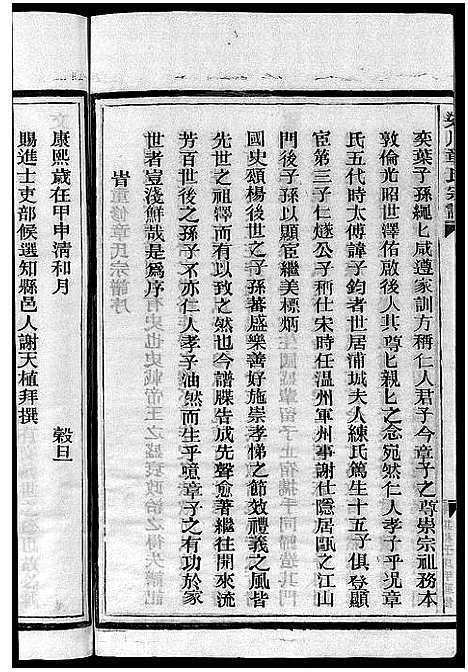 奕葉子孫繩匕咸遵家訓方稱仁人君子今章子之尊崇宗祖務本
敦倫光昭世澤佑啟後人其尊匕親匕之念宛然仁人孝子乎况章
氏五代時太傅諱子鈞者世居浦城夫人練氏篤生十五子俱登顯
宦第三子仁燧公子稱仕宋時任温州軍州事謝仕隱居甌之江山
門後子孫以顯宦繼美標炳
國史頸楊後世之子孫蕃盛樂善好施崇孝悌之節效禮義之風皆
先世之祖釋而有以致之然也今譜牒告成先聲愈著繼往開來流
芳百世後之孫子不亦仁人孝子油然而生乎噫章子之有功於家
世者豈淺鮮哉是爲序
旹
康熙歲在甲申清和月
穀旦
賜進士吏部候選知縣邑人謝天植拜撰
章氏宗譜